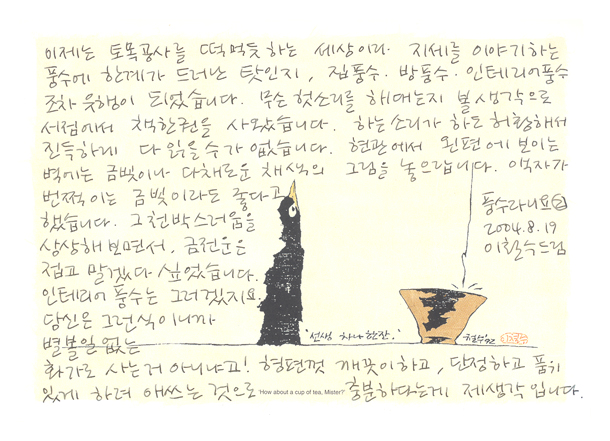 이제는 토목공사를 떡먹듯하는 세상이라 지세를 이야기하는
풍수에 한계가 드러난 탓인지, 집풍수·방풍수·인테리어풍수
조차 유행이 되었습니다. 무슨 헛소리를 해대는지 볼 생각으로
서점에서 책한권을 사왔습니다. 하는소리가 하도 허황해서
진득하게 다 읽을 수가 없습니다. 현관에서 왼편에 보이는
벽에는 금빛이나 다채로운 채색의 그림을 놓으랍니다. 이왕자가
번쩍이는 금빛이라도 좋다고
했습니다. 그 천박스러움을
상상해 보면서, 금전운은
접고 말겠다 싶었습니다.
인테리어 풍수는 그러겠지요.
당신은 그런식이니까
별볼일 없는
화가로 사는거 아니냐고! 형편껏 깨끗이하고, 단정하고 품위
있게 하려 애쓰는 것으로 충분하다는게 제생각입니다.
풍수라니요 2
2004.8.19
이철수드림
'선생 차나 한잔.'
철수
'How about a cup of tea, Mister?'